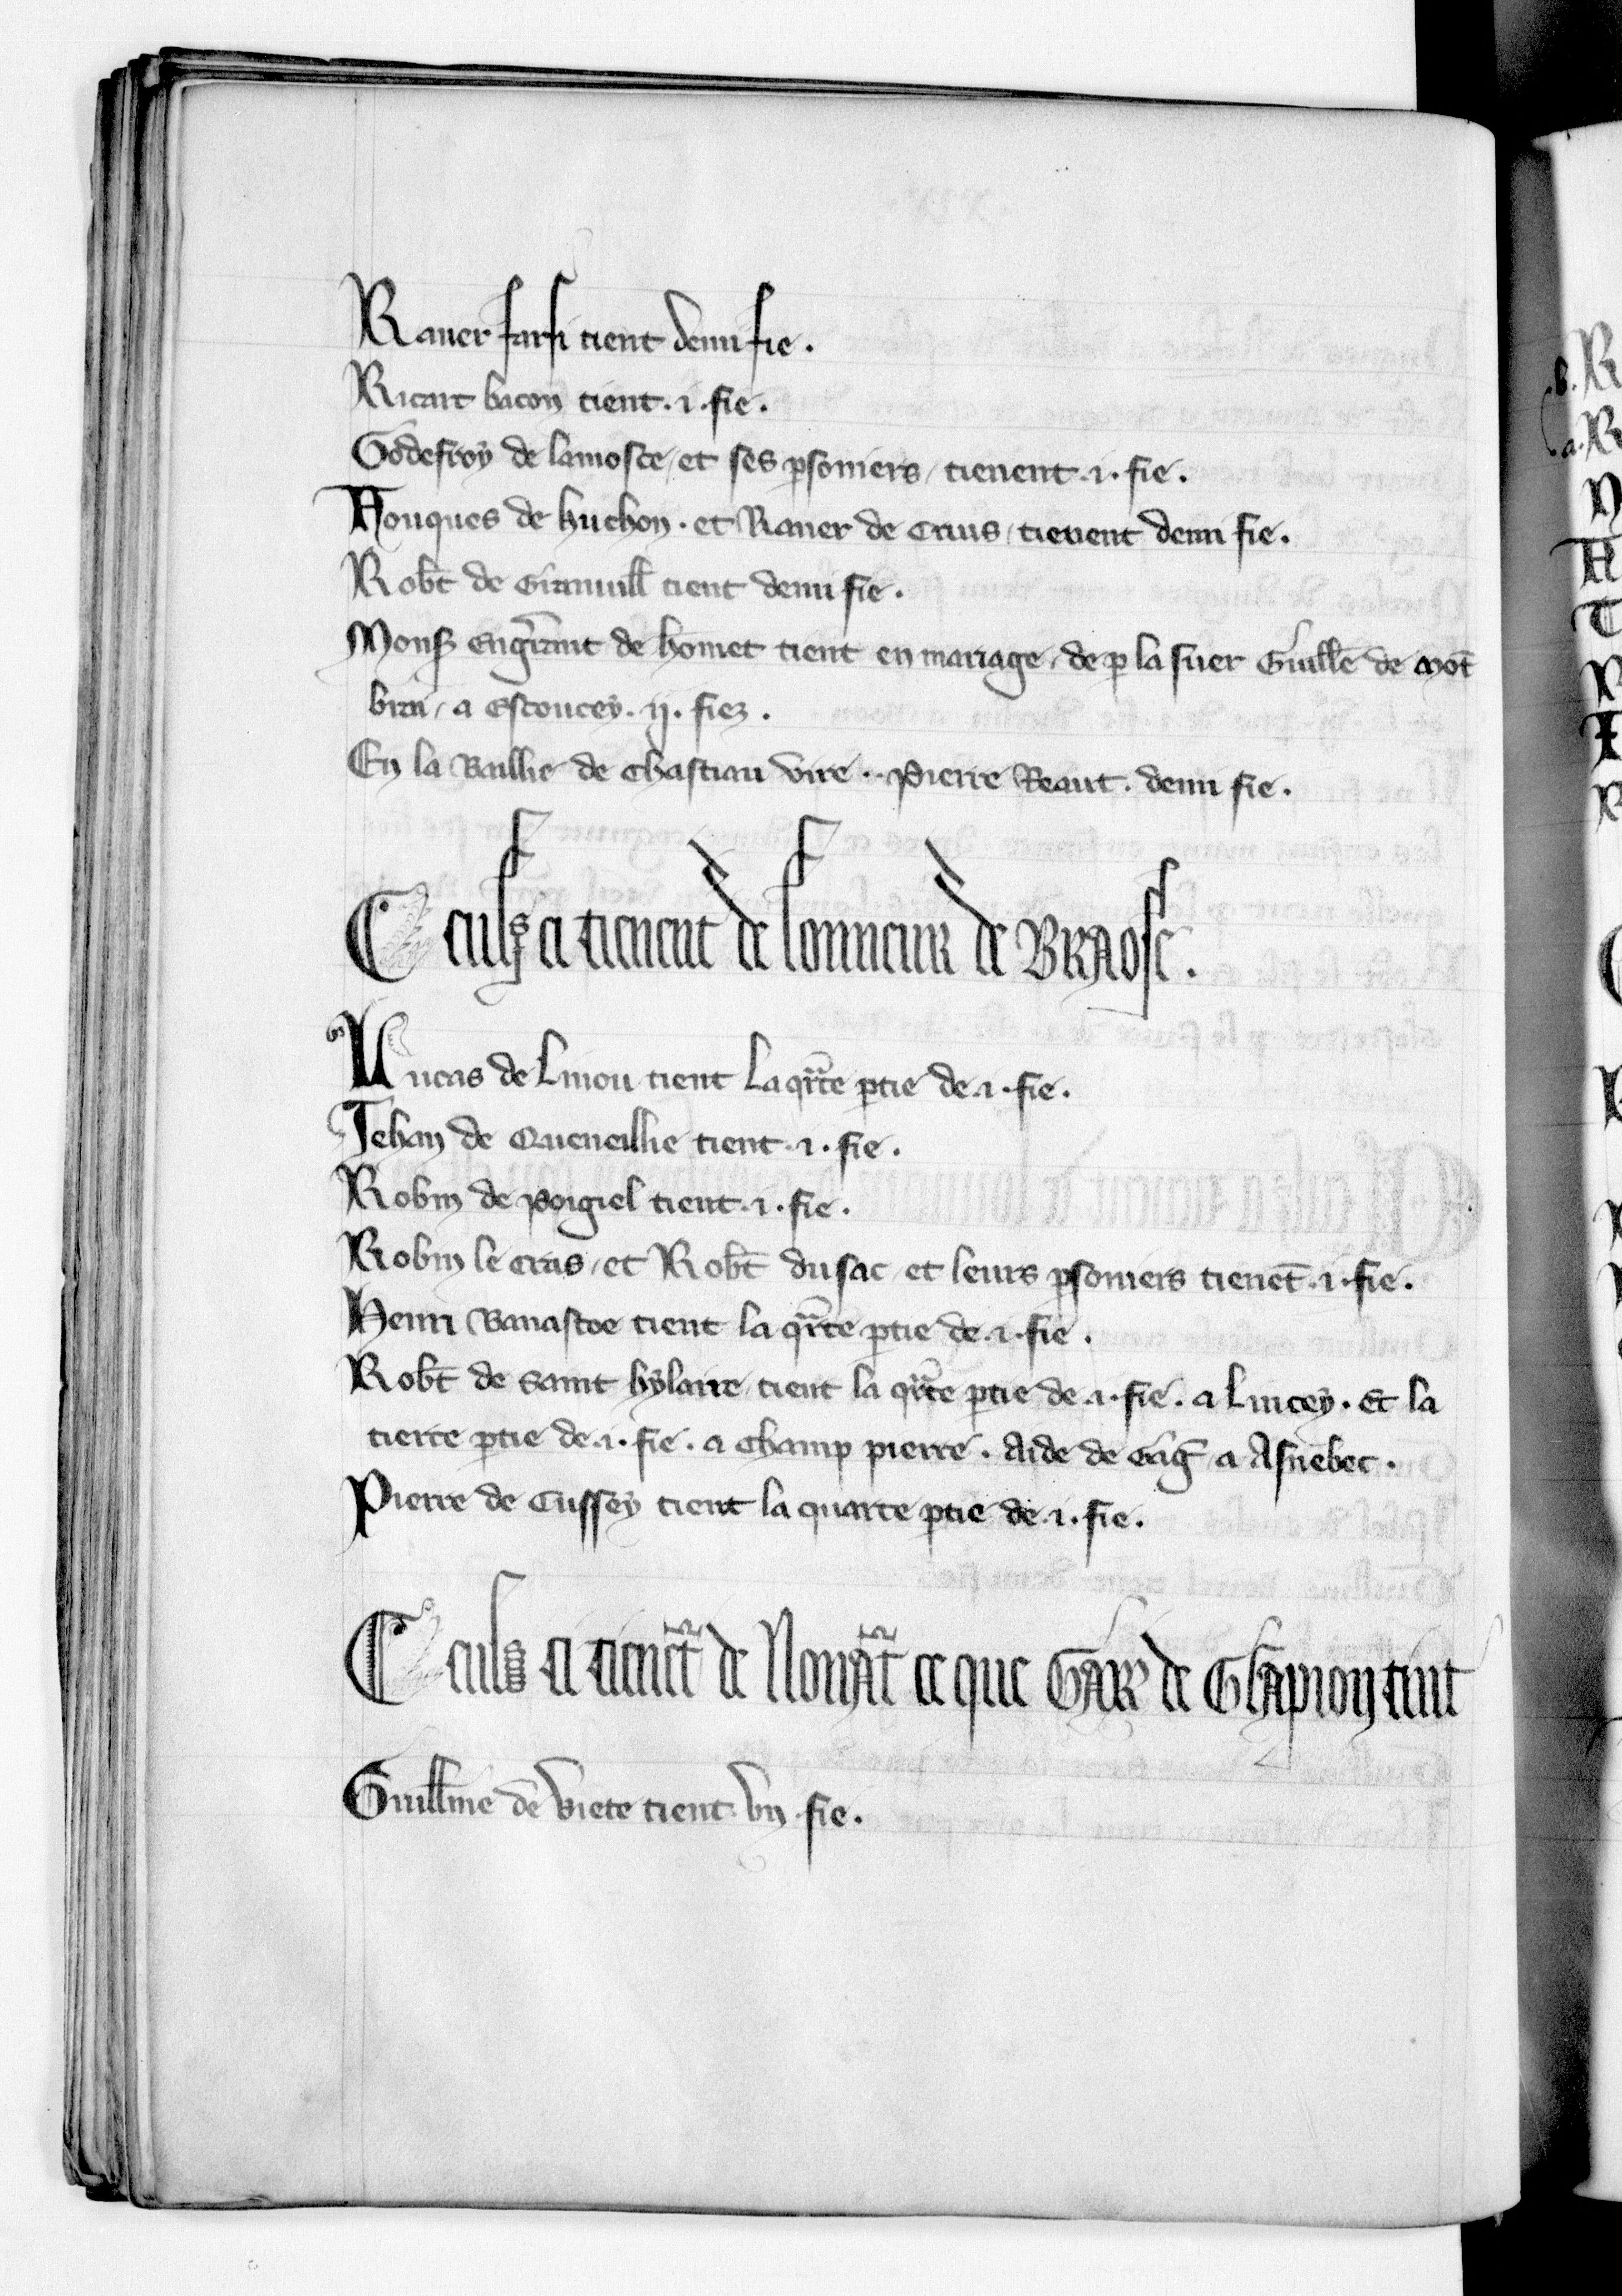 Rauer farsi tient demi fie.
Ricart bacon tient .i. fie.
Godefroy de lamoste, et ses psoniers, tienent .i. fie.
Fouques de huchon. et Rauer de Crius, tienent demi fie.
Robt de Giranuill tient demi fie.
Mons engirant de homet tient en mariage, de p la suer Guille de mot
brai, a Estoucey. ij. fiez.
En la Baillie de Chastiau vire .. Pierre Reaut. demi fie.
Ceuls ci tienent de lonneur de BRAOSe.
Lucas de Linou tient la qrte ptie de .i. fie.
Jehan de Queneillie tient .i. fie.
Robin de Poigiel tient .i. fie.
Robin le cras, et Robt du sac, et leurs psoniers tienet .i. fie.
Henri Banastoe tient la qrte ptie de .i. fie.
Robt de Saint hylaire, tient la qrte ptie de .i. fie. a Lincey. Et la
tierce ptie de .i. fie. a Champ pierre. Aide de a Asnebec.
Pierre de Cussey tient la quarte ptie de .i. fie.
Ceuls ci tienet de Nonat ce que GAR de Glapion tint
Guillme de Viete tient vn fie.